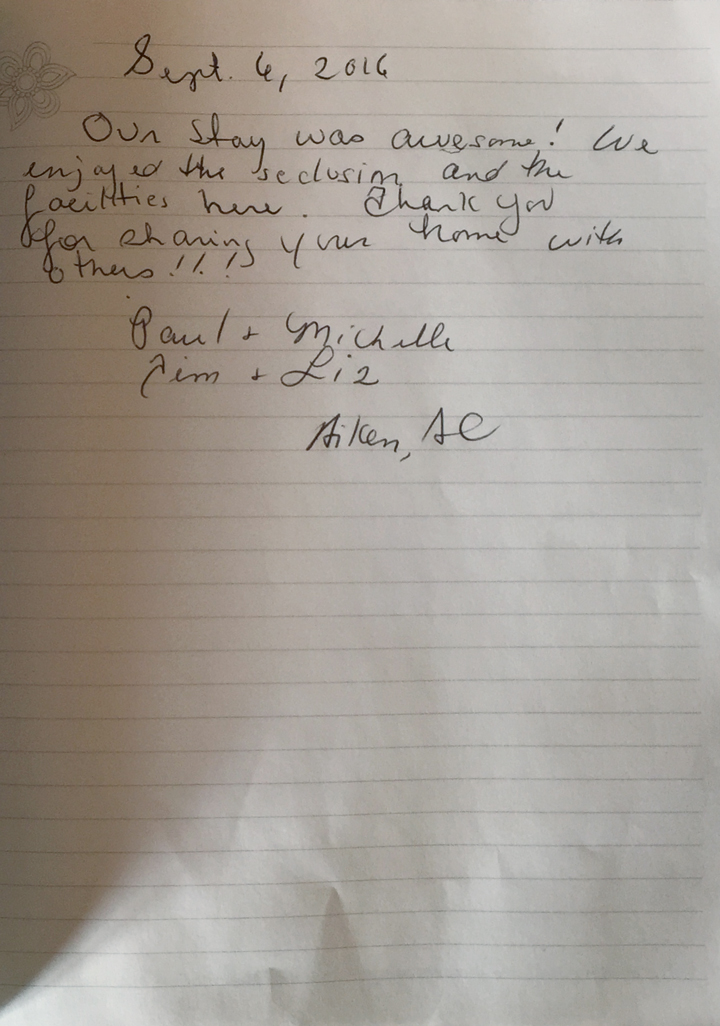 Sept. 6, 2016
Our stay was awesome! We
enjoyed the seclusion and the
facilities here. Thank you
for sharing your home with
others!!!!
Paul + Michelle
Jim + Liz
Aiken, SC